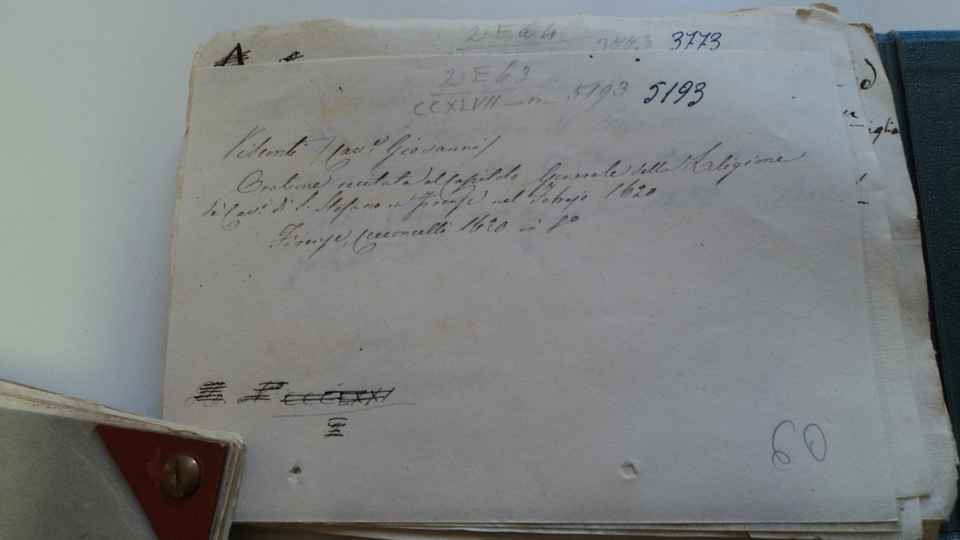 2 E a 4 3773
2 E 6 3
CCXLVII — n — 5193 5193
Visconti (Cav.e Giovanni)
Orazione recitata al Capitolo Generale della Religione
de' Cav.i di S. Stefano in Firenze nel 1620
Firenze, Cecconcelli 1620 in 8°
CCCLXXI
60